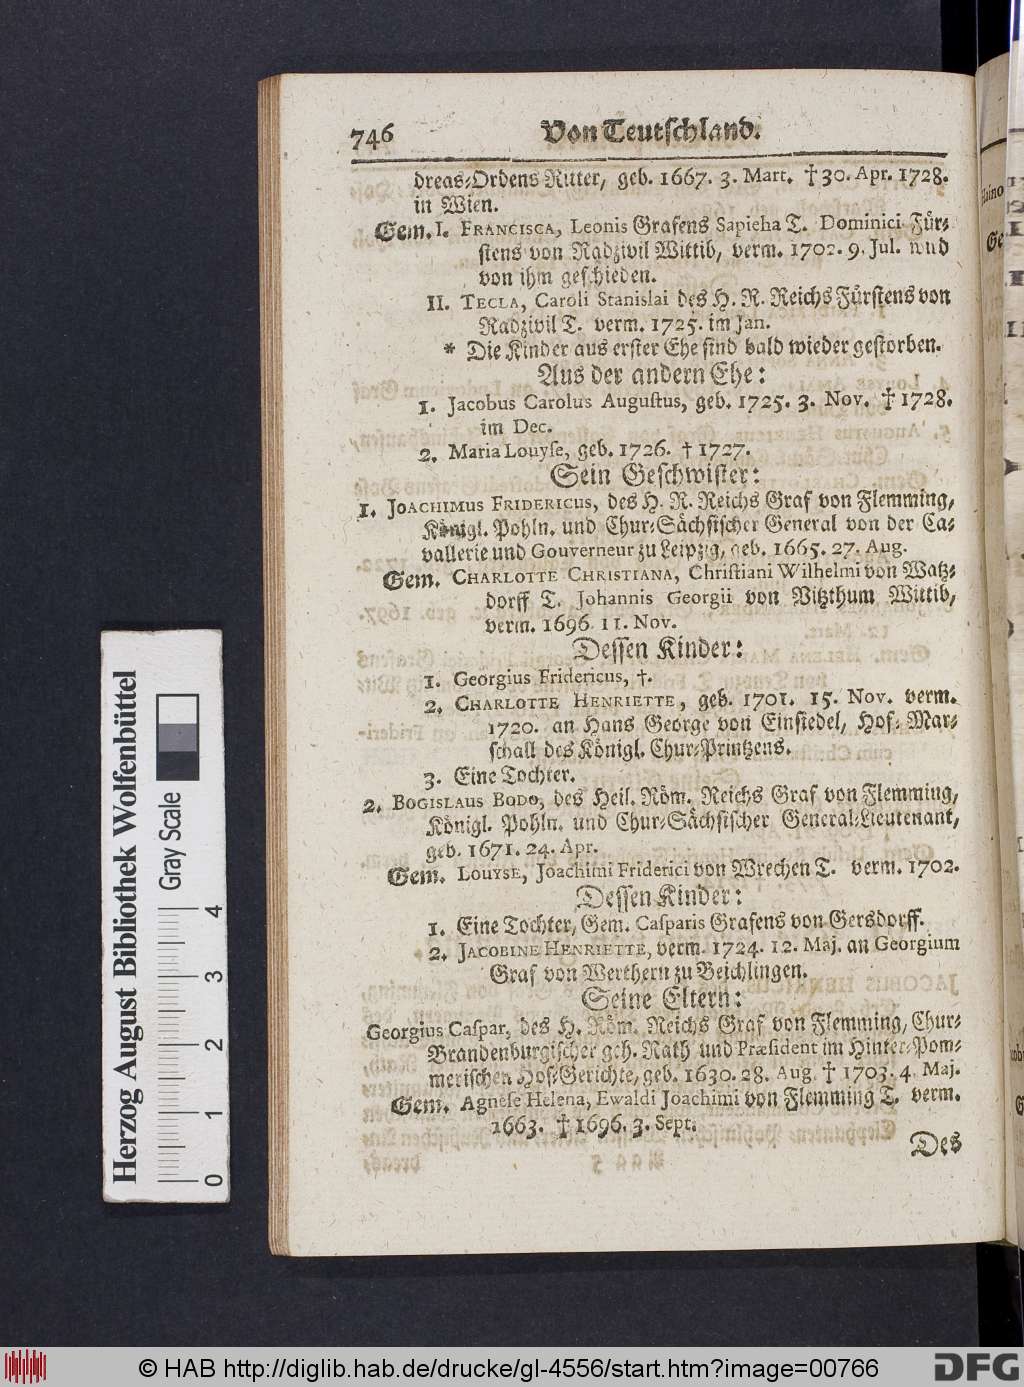 746 Von Teutschland.
dreas-Ordens Ritter, geb. 1667. 3. Mart. † 30. Apr. 1728.
in Wien.
Gem. I. FRANCISCA, Leonis Grafens Sapieha T. Dominici Für-
stens von Radzivil Wittib, verm. 1702. 9. Jul. und
von ihm geschieden.
II. TECLA, Caroli Stanislai des H. R. Reichs Fürstens von
Radzivil T. verm. 1725. im Jan.
* Die Kinder aus erster Ehe sind bald wieder gestorben.
Aus der andern Ehe:
1. Jacobus Carolus Augustus, geb. 1725. 3. Nov. † 1728.
im Dec.
2. Maria Louyse, geb. 1726. † 1727.
Sein Geschwister:
1. JOACHIMUS FRIDERICUS, des H. R. Reichs Graf von Flemming,
Königl. Pohln. und Chur-Sächsischer General von der Ca-
vallerie und Gouverneur zu Leipzig, geb. 1665. 27. Aug.
Gem. CHARLOTTE CHRISTIANA, Christiani Wilhelmi von Watz-
dorff T. Johannis Georgii von Vitzthum Wittib,
verm. 1696. 11. Nov.
Dessen Kinder:
1. Georgius Fridericus, †.
2. CHARLOTTE HENRIETTE, geb. 1701. 15. Nov. verm.
1720. an Hans George von Einsiedel, Hof-Mar-
schall des Königl. Chur-Printzens.
3. Eine Tochter.
2. BOGISLAUS BODO, des Heil. Röm. Reichs Graf von Flemming,
Königl. Pohln. und Chur-Sächsischer General-Lieutenant,
geb. 1671. 24. Apr.
Gem. LOUYSE, Joachimi Friderici von Wrechen T. verm. 1702.
Dessen Kinder:
1. Eine Tochter, Gem. Casparis Grafens von Gersdorff.
2. JACOBINE HENRIETTE, verm. 1724. 12. Maj. an Georgium
Graf von Werthern zu Beichlingen.
Seine Eltern:
Georgius Caspar, des H. Röm. Reichs Graf von Flemming, Chur-
Brandenburgischer geh. Rath und Præsident im Hinter-Pom-
merischen Hof-Gerichte, geb. 1630. 28. Aug. † 1703. 4. Maj.
Gem. Agnese Helena, Ewaldi Joachimi von Flemming T. verm.
1663. † 1696. 3. Sept.
Des
Herzog August Bibliothek Wolfenbüttel
Gray Scale
0 1 2 3 4
© HAB http://diglib.hab.de/drucke/gl-4556/start.htm?image=00766
DFG